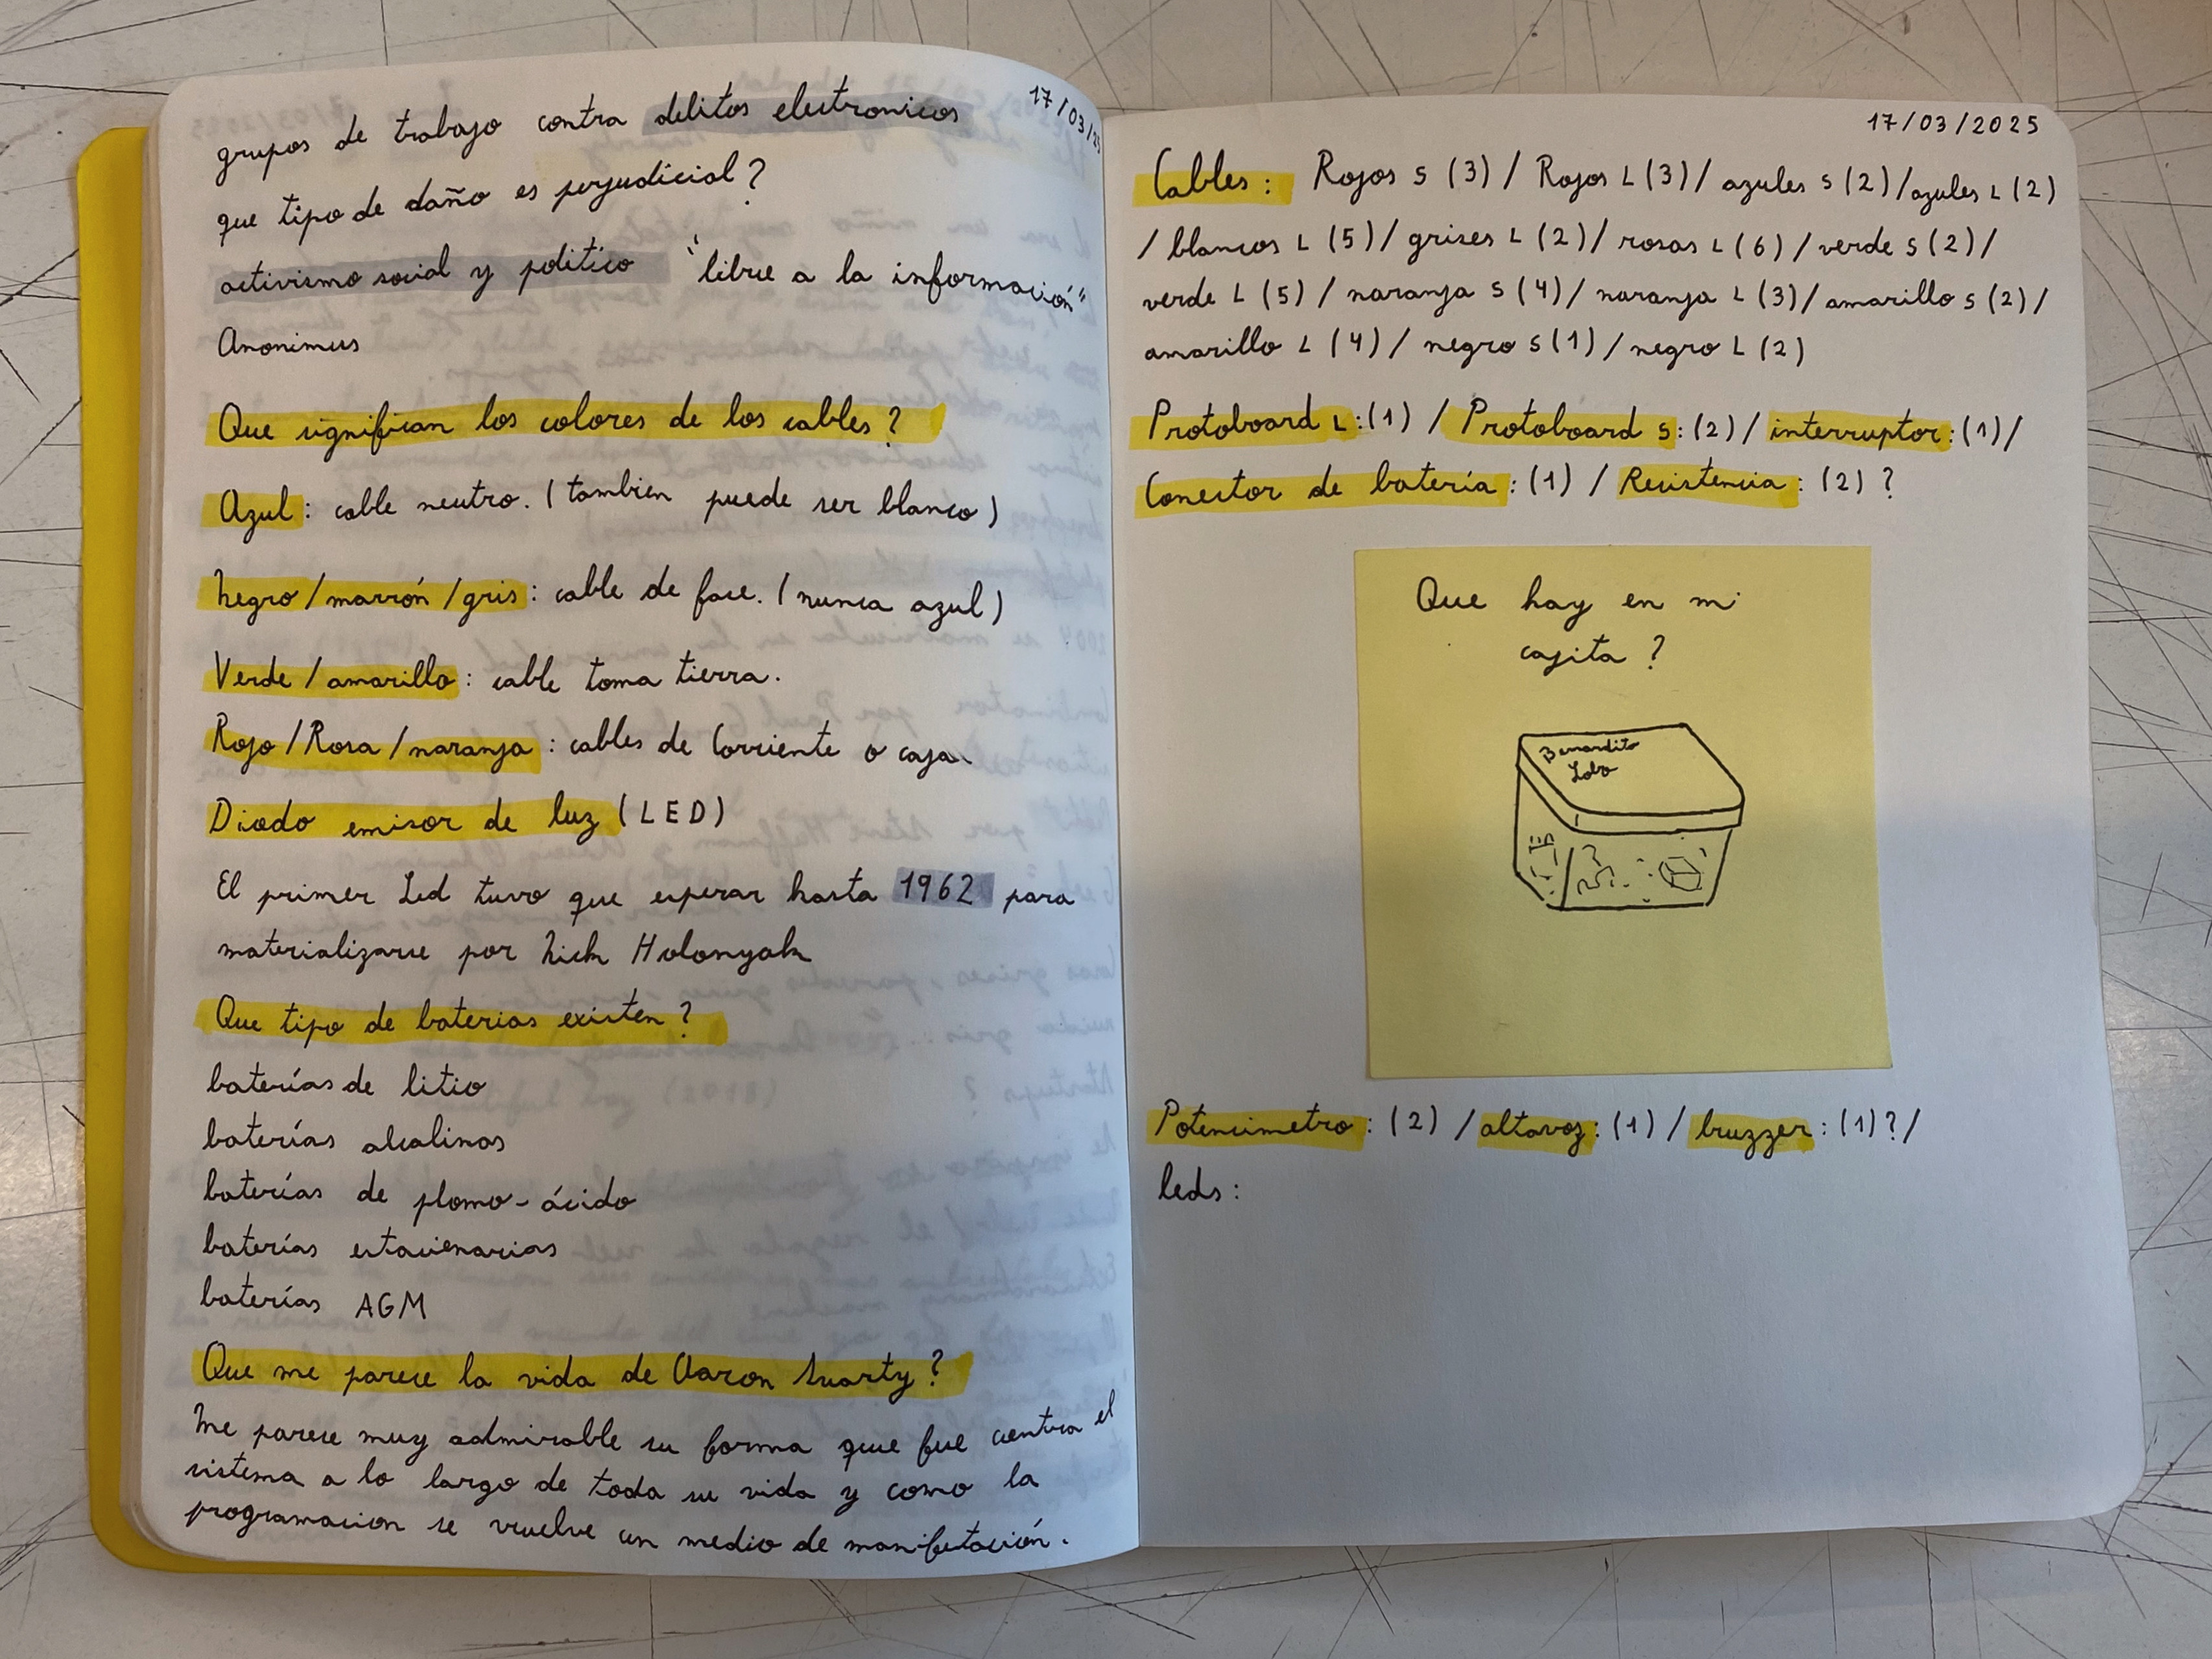 17/03/25
grupos de trabajo contra delitos electronicos
que tipo de daño es perjudicial?
activismo social y politico "libre a la información"
Anonimus
Que significan los colores de los cables?
Azul: cable neutro. (tambien puede ser blanco)
Negro/marrón/gris: cable de fase. (nunca azul)
Verde/amarillo: cable toma tierra.
Rojo/Rosa/naranja: cables de Corriente o caja
Diodo emisor de luz (LED)
El primer Led tuvo que esperar hasta 1962 para
materializarse por Nick Holonyak
Que tipo de baterias existen?
baterías de litio
baterías alcalinas
baterías de plomo-ácido
baterías estacionarias
baterías AGM
Que me parece la vida de Aaron Swarty?
Me parece muy admirable su forma que fue contra el
sistema a lo largo de toda su vida y como la
programacion se vuelve un medio de manifestación.
17/03/2025
Cables: Rojos S (3) / Rojos L (3) / azules S (2) / azules L (2)
/ blancos L (5) / grises L (2) / rosas L (6) / verde S (2) /
verde L (5) / naranja S (4) / naranja L (3) / amarillo S (2) /
amarillo L (4) / negro S (1) / negro L (2)
Protoboard L: (1) / Protoboard S: (2) / interruptor: (1) /
Conector de batería: (1) / Resistencia: (2) ?
Que hay en mi
cajita ?
Bernardito
Lobo
Potencimetro: (2) / altavoz: (1) / bruzzer: (1)? /
leds: